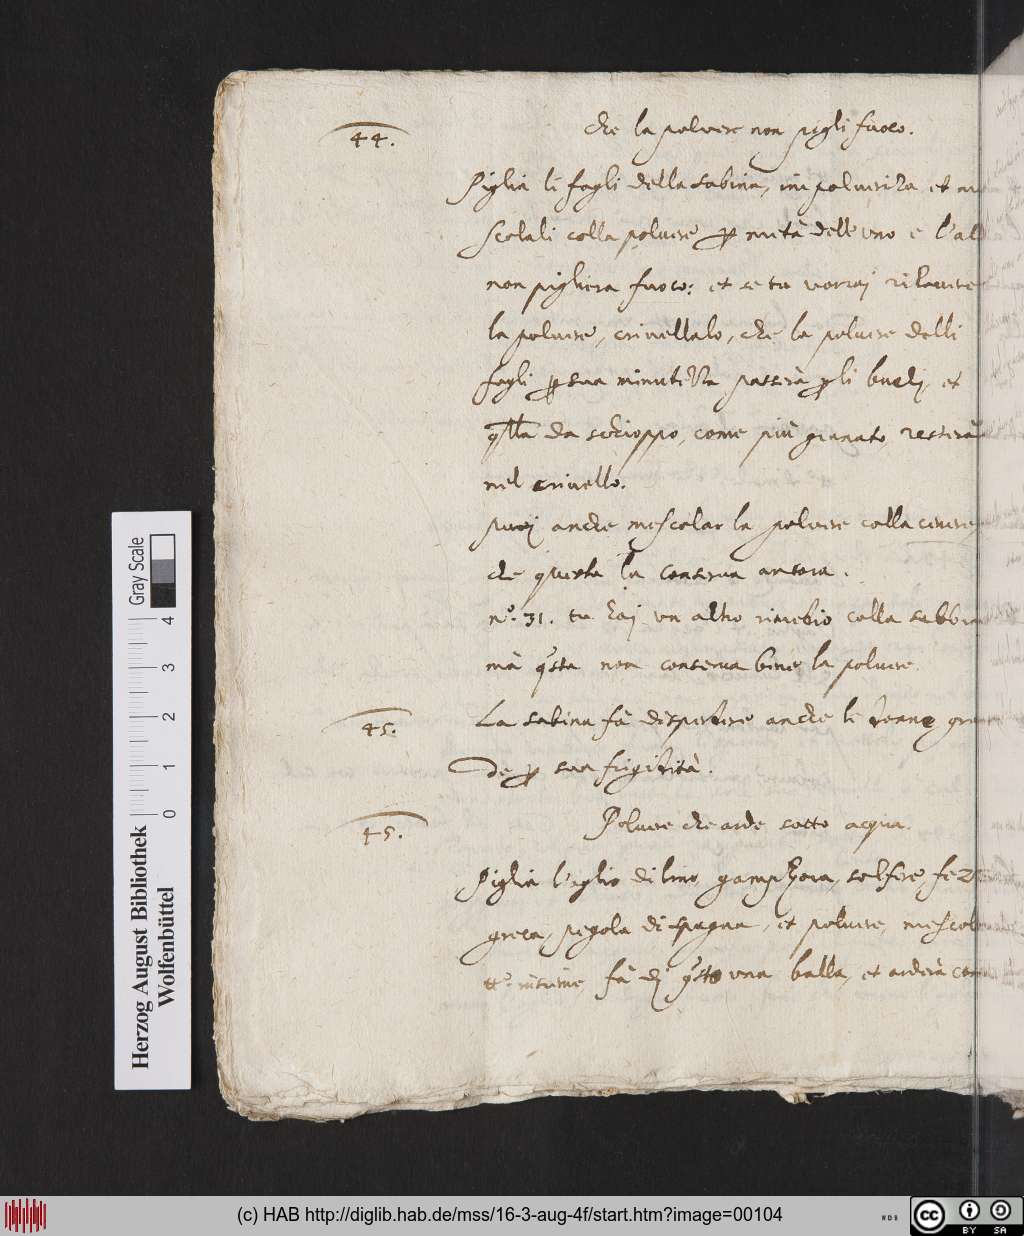 44.
che la poluere non pigli fuoco.
Piglia le fogli della sabina, impoluerizza et
scolali colla poluere p metà delle uno e l'al
non pigliera fuoco: et se tu vorrai rilauere
la poluere, criuellalo, che la poluere delli
fogli p sua minutezza passerà p gli buchj, et
qlla da schioppo, come più granato, resterà
nel criuello.
puoj anche mescolar la poluere colla cenere
che questa la conserua ancora.
nº. 31. tu haj un altro rimedio colla sabbia
mà qsta non conserua bene la poluere.
45.
La sabina fà disperdere anche le donne gra
de p sua frigidità.
45.
Poluere che arde sotto acqua.
Piglia l'oglio di lino, gamphora, solfere,
greca, pegola di spagna, et poluere, mescol
insieme, fà dj qsto una balla, et arderà
Gray Scale
0 1 2 3 4
Herzog August Bibliothek
Wolfenbüttel
(c) HAB http://diglib.hab.de/mss/16-3-aug-4f/start.htm?image=00104
WDB
cc BY SA